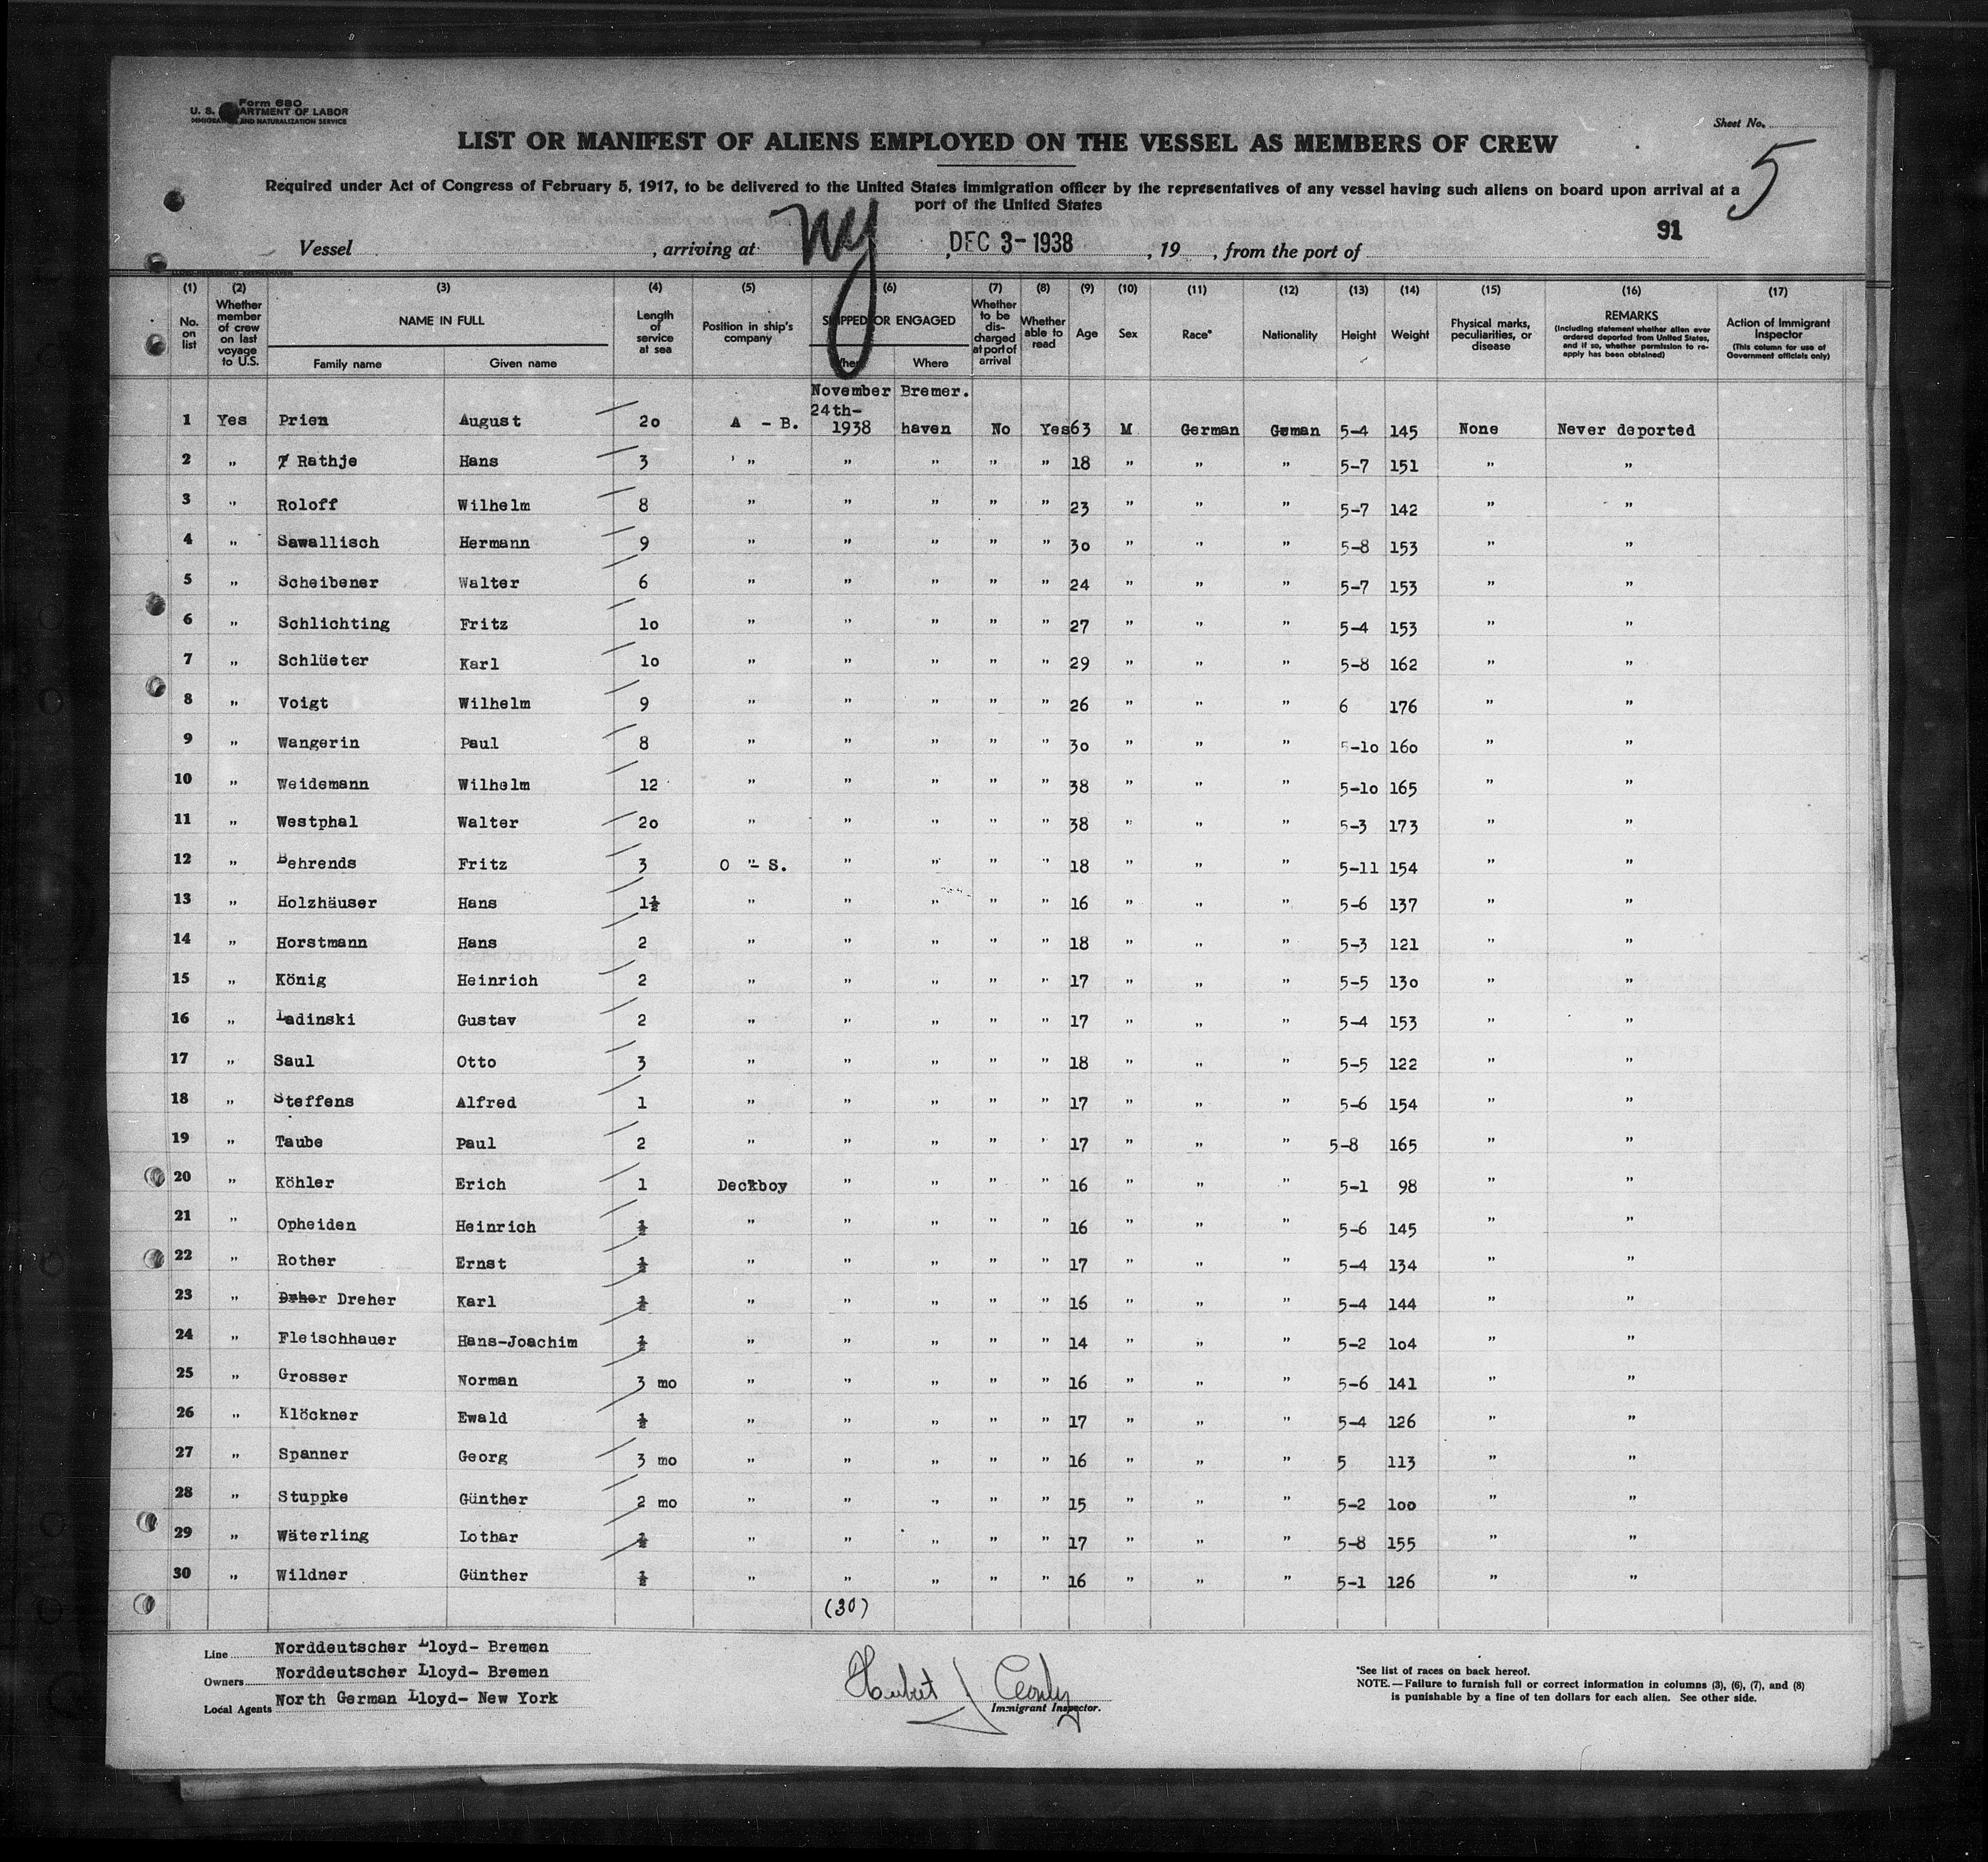 Form 680
U. S. DEPARTMENT OF LABOR
IMMIGRATION AND NATURALIZATION SERVICE
Sheet No.
5
LIST OR MANIFEST OF ALIENS EMPLOYED ON THE VESSEL AS MEMBERS OF CREW
Required under Act of Congress of February 5, 1917, to be delivered to the United States immigration officer by the representatives of any vessel having such aliens on board upon arrival at a
port of the United States
91
Vessel , arriving at NY , DEC 3- 1938 , 19 , from the port of
(1) (2) (3) (4) (5) (6) (7) (8) (9) (10) (11) (12) (13) (14) (15) (16) (17)
No. on list Whether member of crew on last voyage to U.S. NAME IN FULL Family name Given name Length of service at sea Position in ship's company SHIPPED OR ENGAGED When Where Whether to be discharged at port of arrival Whether able to read Age Sex Race* Nationality Height Weight Physical marks, peculiarities, or disease REMARKS (Including statement whether alien ever ordered deported from United States, and if so, whether permission to re-apply has been obtained) Action of Immigrant Inspector (This column for use of Government officials only)
November Bremer.
24th-
1 Yes Prien August 20 A - B. 1938 haven No Yes 63 M German Geman 5-4 145 None Never deported
2 " 7 Rathje Hans 3 " " " " " 18 " " " 5-7 151 " "
3 " Roloff Wilhelm 8 " " " " " 23 " " " 5-7 142 " "
4 " Sawallisch Hermann 9 " " " " " 30 " " " 5-8 153 " "
5 " Scheibener Walter 6 " " " " " 24 " " " 5-7 153 " "
6 " Schlichting Fritz 10 " " " " " 27 " " " 5-4 153 " "
7 " Schlüeter Karl 10 " " " " " 29 " " " 5-8 162 " "
8 " Voigt Wilhelm 9 " " " " " 26 " " " 6 176 " "
9 " Wangerin Paul 8 " " " " " 30 " " " 5-10 160 " "
10 " Weidemann Wilhelm 12 " " " " " 38 " " " 5-10 165 " "
11 " Westphal Walter 20 " " " " " 38 " " " 5-3 173 " "
12 " Behrends Fritz 3 O "- S. " " " " 18 " " " 5-11 154 " "
13 " Holzhäuser Hans 1½ " " " " " 16 " " " 5-6 137 " "
14 " Horstmann Hans 2 " " " " " 18 " " " 5-3 121 " "
15 " König Heinrich 2 " " " " " 17 " " " 5-5 130 " "
16 " Ladinski Gustav 2 " " " " " 17 " " " 5-4 153 " "
17 " Saul Otto 3 " " " " " 18 " " " 5-5 122 " "
18 " Steffens Alfred 1 " " " " " 17 " " " 5-6 154 " "
19 " Taube Paul 2 " " " " " 17 " " " 5-8 165 " "
20 " Köhler Erich 1 Deckboy " " " " 16 " " " 5-1 98 " "
21 " Opheiden Heinrich ½ " " " " " 16 " " " 5-6 145 " "
22 " Rother Ernst ½ " " " " " 17 " " " 5-4 134 " "
23 " Drher Dreher Karl ½ " " " " " 16 " " " 5-4 144 " "
24 " Fleischhauer Hans-Joachim ½ " " " " " 14 " " " 5-2 104 " "
25 " Grosser Norman 3 mo " " " " " 16 " " " 5-6 141 " "
26 " Klöckner Ewald ½ " " " " " 17 " " " 5-4 126 " "
27 " Spanner Georg 3 mo " " " " " 16 " " " 5 113 " "
28 " Stuppke Günther 2 mo " " " " " 15 " " " 5-2 100 " "
29 " Wäterling Lothar ½ " " " " " 17 " " " 5-8 155 " "
30 " Wildner Günther ½ " " " " " 16 " " " 5-1 126 " "
(30)
Line Norddeutscher Lloyd- Bremen
Owners Norddeutscher Lloyd- Bremen
Local Agents North German Lloyd- New York
Immigrant Inspector.
*See list of races on back hereof.
NOTE.—Failure to furnish full or correct information in columns (3), (6), (7), and (8)
is punishable by a fine of ten dollars for each alien. See other side.